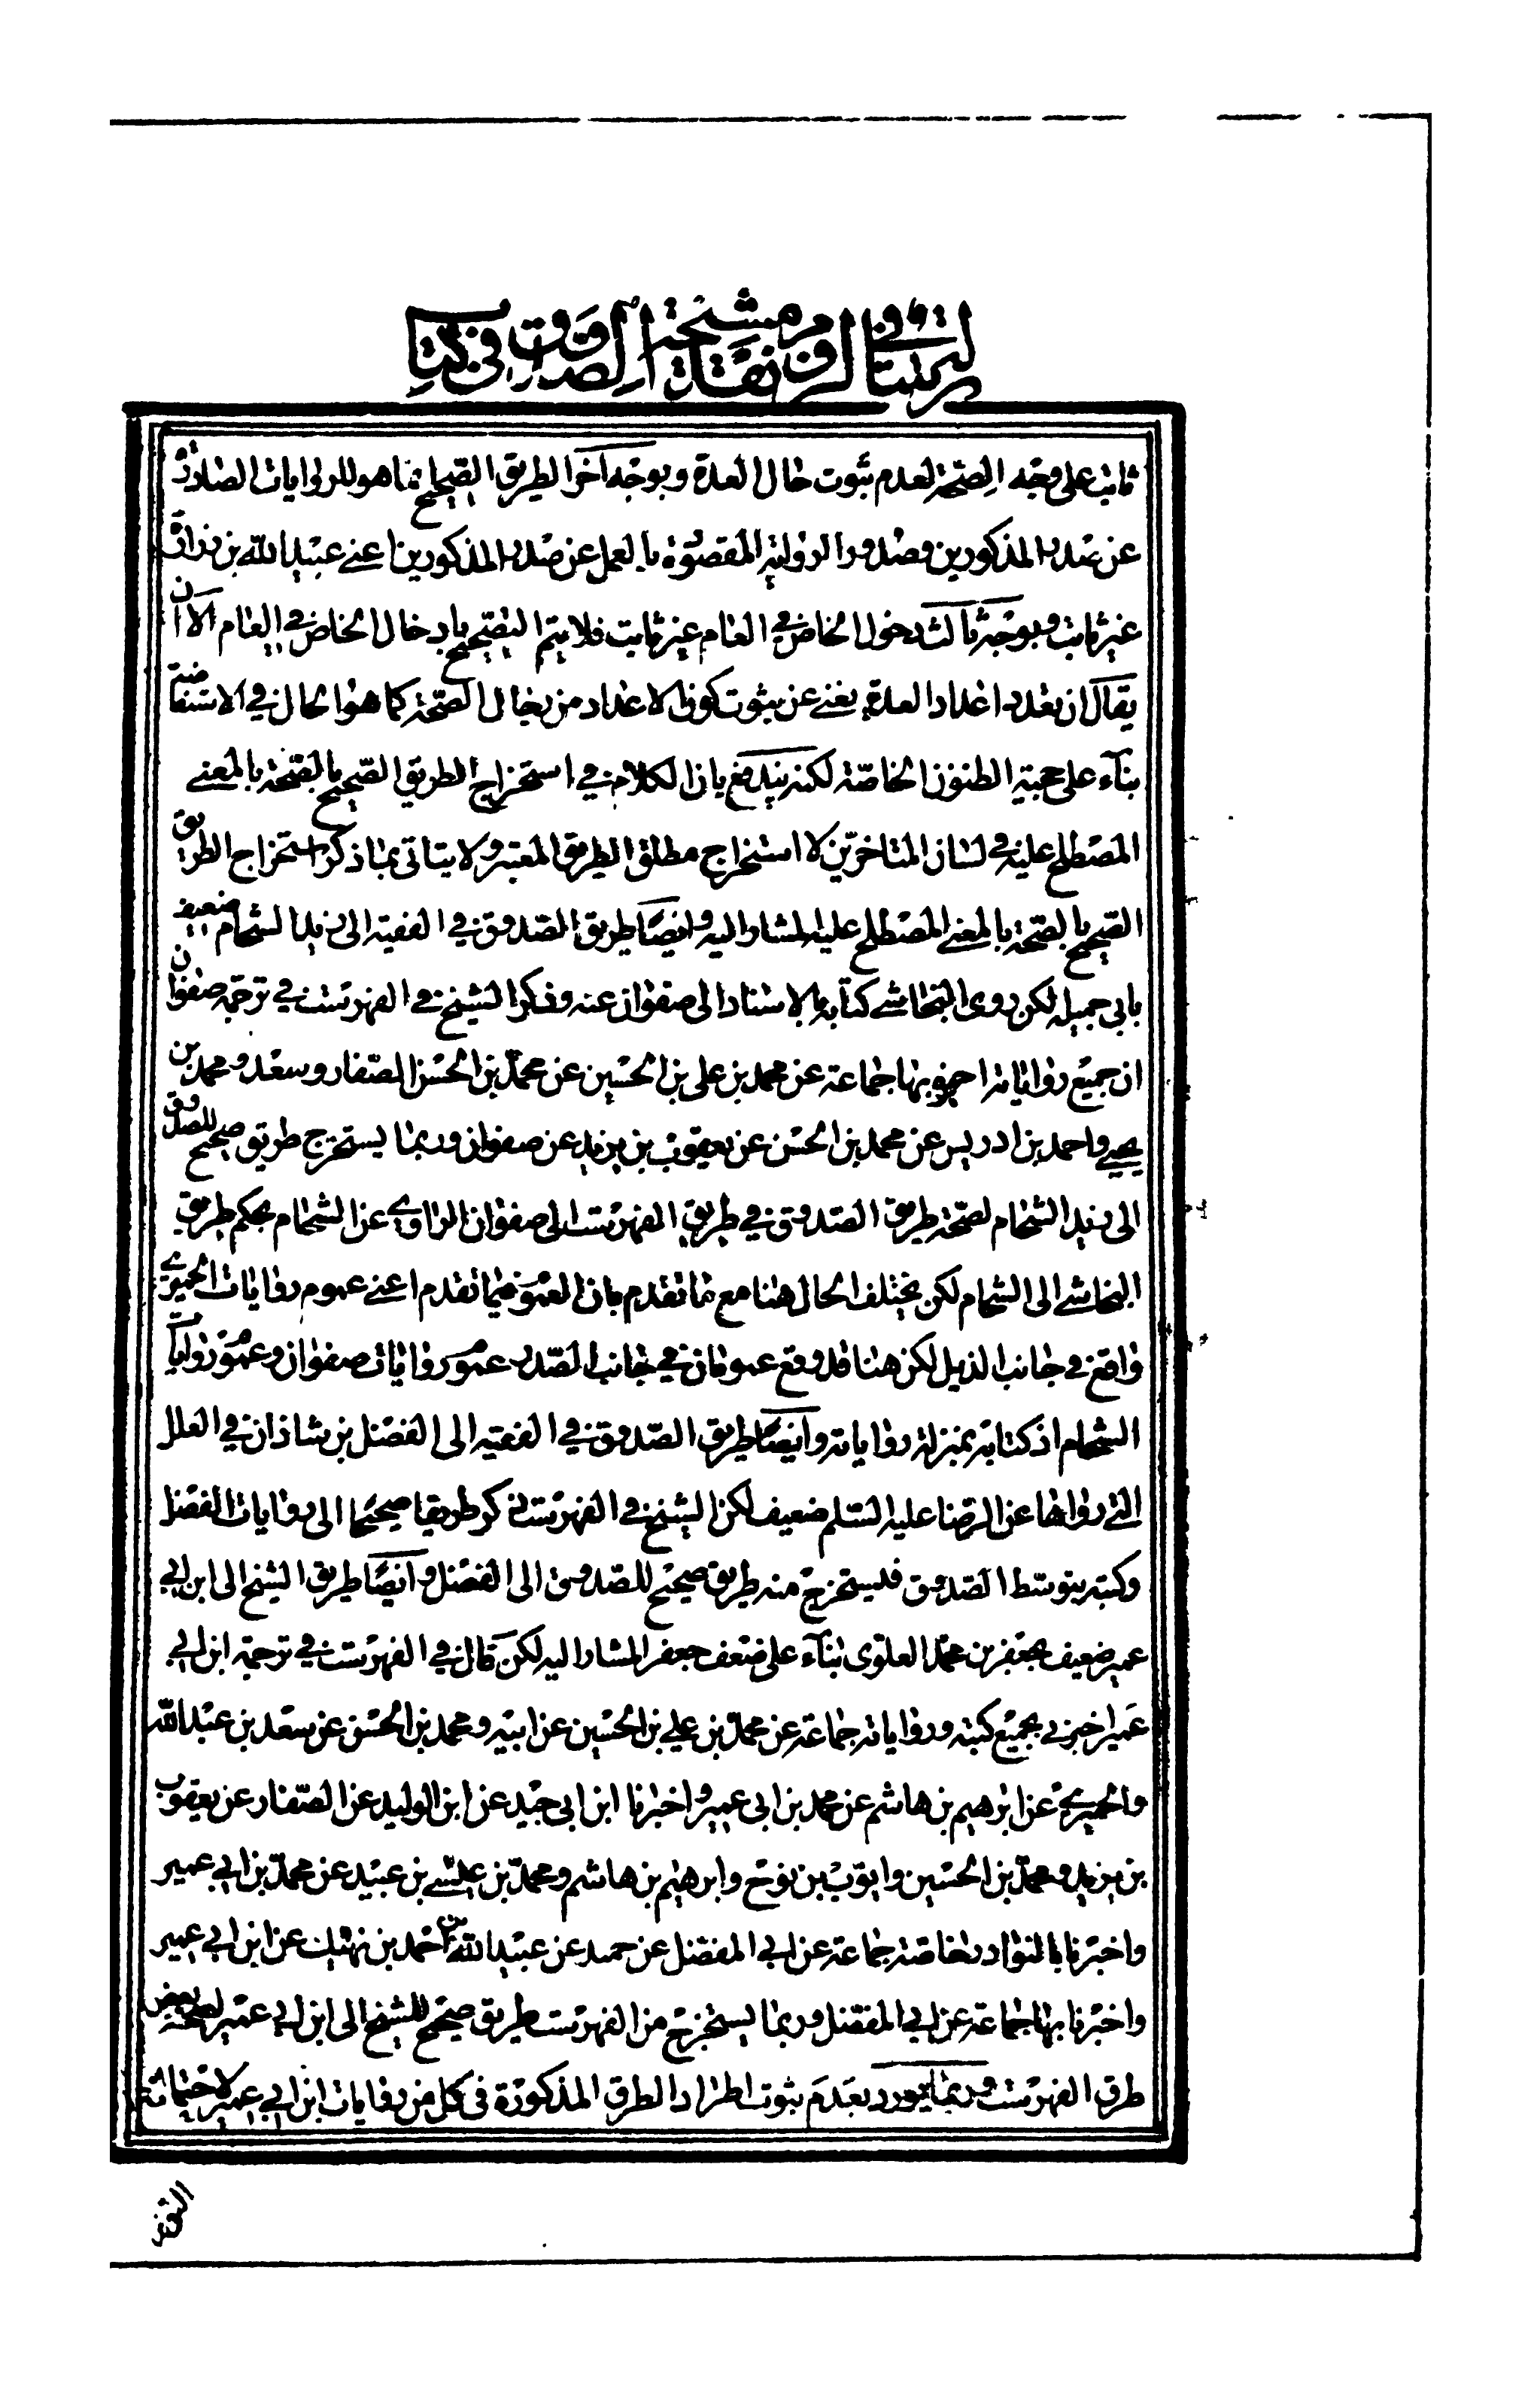 ثابت على وجه الصحة لعدم ثبوت حال العدة وبوجه آخر الطريق الصحيح انما هو للروايات الصادرة
عن صدر المذكورين وصدور الرواية المقصودة بالعمل عن صدر المذكورين اعني عبيد الله بن زرارة
غير ثابت وبوجه ثالث دخول الخاص في العام غير ثابت فلا يتم التصحيح بادخال الخاص في العام الا ان
يقال ان تعدد اعداد العدة يغني عن ثبوت كون الاعداد من رجال الصحة كما هو الحال في الاستفاضة
بناء على حجية الظنون الخاصة لكنه يندفع بان الكلام في استخراج الطريق الصحيح بالصحة بالمعنى
المصطلح عليه في لسان المتاخرين لا استخراج مطلق الطريق المعتبر ولا يتاتى بما ذكر استخراج الطريق
الصحيح بالصحة بالمعنى المصطلح عليه المشار اليه وايضا طريق الصدوق في الفقيه الى زيد الشحام ضعيف
بابي جميلة لكن روى النجاشي كتابه بالاسناد الى صفوان عنه وذكر الشيخ في الفهرست في ترجمة صفوان
ان جميع رواياته اخبرنا بها جماعة عن محمد بن علي بن الحسين عن محمد بن الحسن الصفار وسعد ومحمد بن
يحيى واحمد بن ادريس عن محمد بن الحسن عن يعقوب بن يزيد عن صفوان وربما يستخرج طريق صحيح للصدوق
الى زيد الشحام لصحة طريق الصدوق في طريق الفهرست الى صفوان الراوي عن الشحام بحكم طريق
النجاشي الى الشحام لكن يختلف الحال هنا مع ما تقدم بان العموم فيما تقدم اعني عموم روايات الحميري
واقع في جانب الذيل لكن هنا قد وقع عمومان في جانب الصدر عموم روايات صفوان وعموم روايات
الشحام اذ كتابه بمنزلة رواياته وايضا طريق الصدوق في الفقيه الى الفضل بن شاذان في العلل
التي رواها عن الرضا عليه السلم ضعيف لكن الشيخ في الفهرست ذكر طريقا صحيحا الى روايات الفضل
وكتبه بتوسط الصدوق فليستخرج منه طريق صحيح للصدوق الى الفضل وايضا طريق الشيخ الى ابن ابي
عمير ضعيف بجعفر بن محمد العلوي بناء على ضعف جعفر المشار اليه لكن قال في الفهرست في ترجمة ابن ابي
عمير اخبرني بجميع كتبه ورواياته جماعة عن محمد بن علي بن الحسين عن ابيه ومحمد بن الحسن عن سعد بن عبد الله
والحميري عن ابرهيم بن هاشم عن محمد بن ابي عمير واخبرنا ابن ابي جيد عن ابن الوليد عن الصفار عن يعقوب
بن يزيد ومحمد بن الحسين وايوب بن نوح وابرهيم بن هاشم ومحمد بن عيسى بن عبيد عن محمد بن ابي عمير
واخبرنا بالنوادر خاصة جماعة عن ابي المفضل عن حميد عن عبيد الله بن احمد بن نهيك عن ابن ابي عمير
واخبرنا بها جماعة عن ابي المفضل وربما يستخرج من الفهرست طريق صحيح للشيخ الى ابن ابي عمير لصحة بعض
طرق الفهرست وربما يورد بعدم ثبوت اطراد الطرق المذكورة في كل من روايات ابن ابي عمير لاحتمال